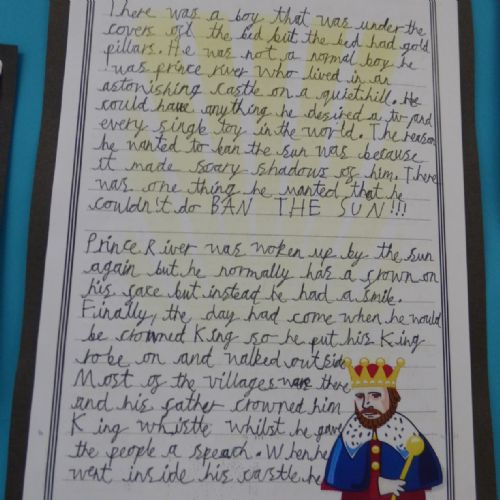 There was a boy that was under the
covers of the bed but the bed had gold
pillars. He was not a normal boy he
was prince river who lived in an
astonishing castle on a quiet hill. He
could have anything he desired a tv and
every single toy in the world. The reason
he wanted to ban the sun was because
it made scary shadows of him. There
was one thing he wanted that he
couldn't do BAN THE SUN!!!
Prince River was woken up by the sun
again but he normally has a frown on
his face but instead he had a smile.
Finally, the day had come when he would
be crowned King so he put his King
robe on and walked outside
Most of the villages were there
and his father crowned him
King whistle whilst he gave
the people a speach. When he
went inside his castle he